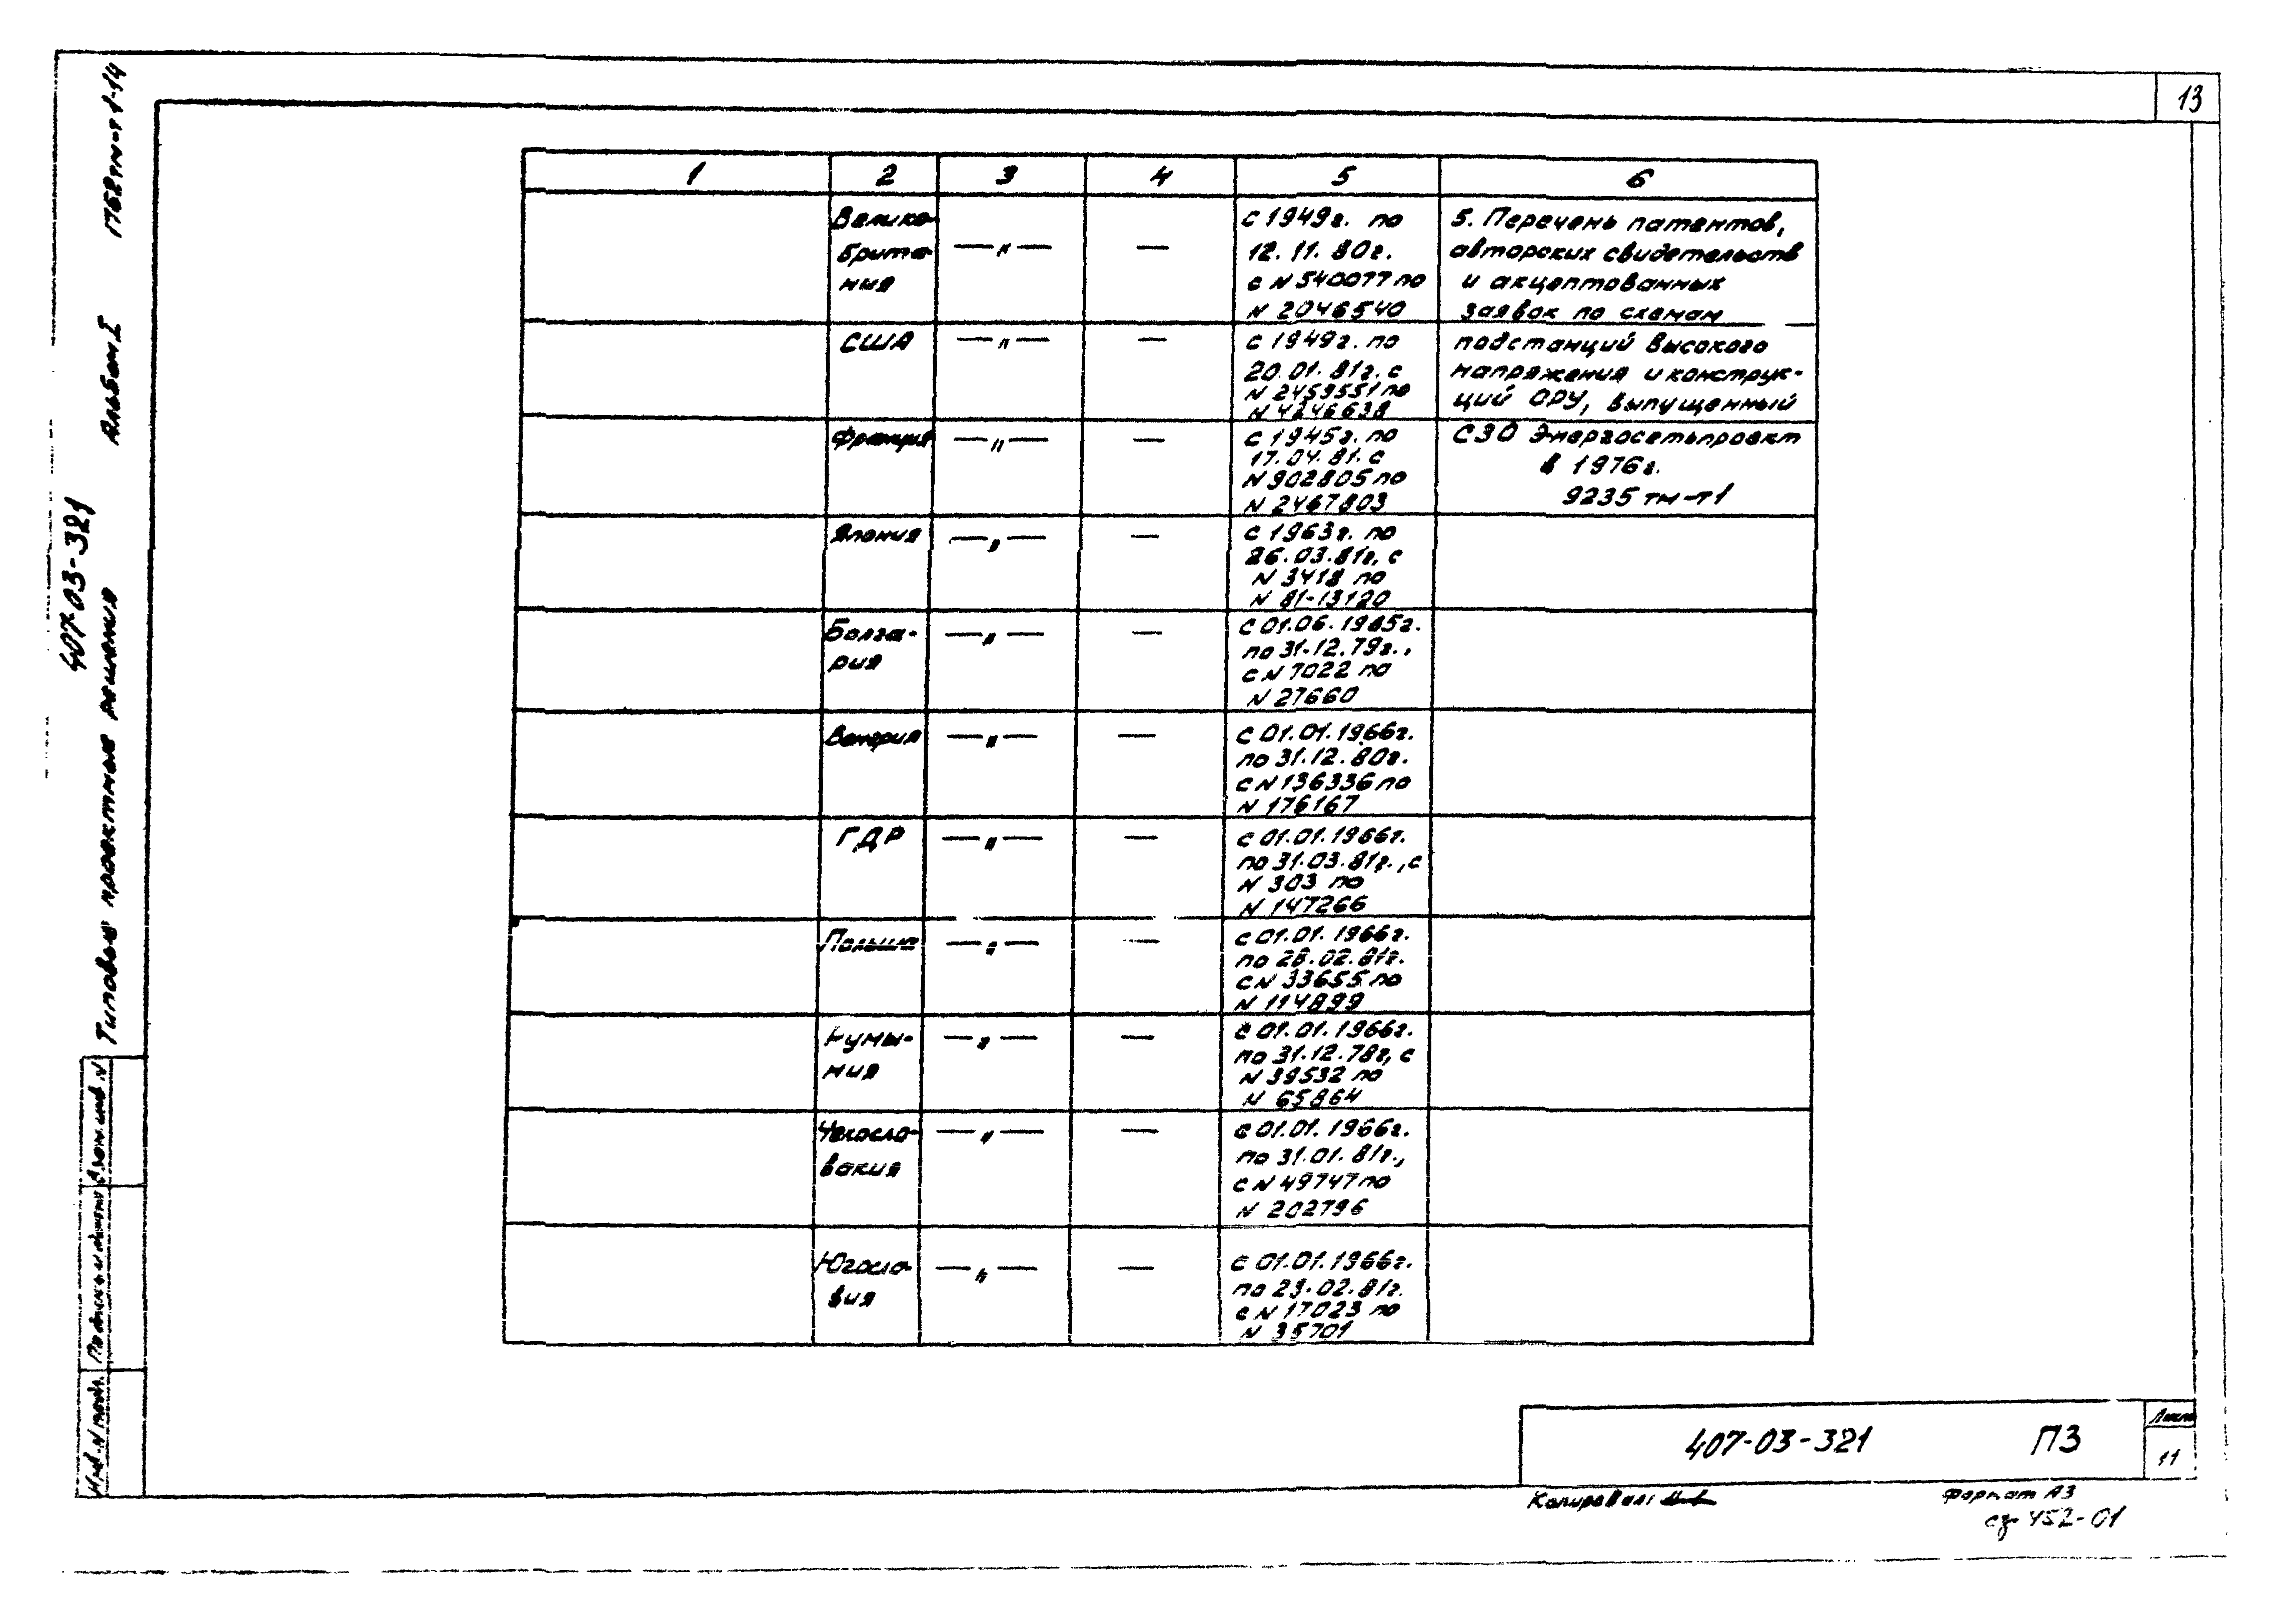 13
1 2 3 4 5 6
Велико-
брита-
ния
— " —
—
с 1949г. по
12.11.80г.
с N 540077 по
N 2046540
5. Перечень патентов,
авторских свидетельств
и акцептованных
заявок по схемам
США
— " —
—
с 1949г. по
20.01.81г. с
N 2459551 по
N 4246638
подстанций высокого
напряжения и конструк-
ций ОРУ, выпущенный
Франция
— " —
—
с 1945г. по
17.04.81. с
N 902805 по
N 2467803
СЗО Энергосетьпроект
в 1976г.
9235 тм-т1
Япония
— " —
—
с 1963г. по
26.03.81г, с
N 3418 по
N 81-13120
Болга-
рия
— " —
—
с 01.06.1965г.
по 31.12.79г.,
с N 7022 по
N 27660
Венгрия
— " —
—
с 01.01.1966г.
по 31.12.80г.
с N 136336 по
N 176167
ГДР
— " —
—
с 01.01.1966г.
по 31.03.81г., с
N 303 по
N 147266
Польша
— " —
—
с 01.01.1966г.
по 28.02.81г.
с N 33655 по
N 114899
Румы-
ния
— " —
—
с 01.01.1966г.
по 31.12.78г, с
N 39532 по
N 65864
Чехосло-
вакия
— " —
—
с 01.01.1966г.
по 31.01.81г.,
с N 49747 по
N 202796
Югосла-
вия
— " —
—
с 01.01.1966г.
по 23.02.81г.
с N 17023 по
N 35701
407-03-321
Типовые проектные решения Альбом I
Взам. инв. N
Подпись и дата
Инв. N подл.
407-03-321 ПЗ
Лист
11
Копировал:
Формат А3
452-01